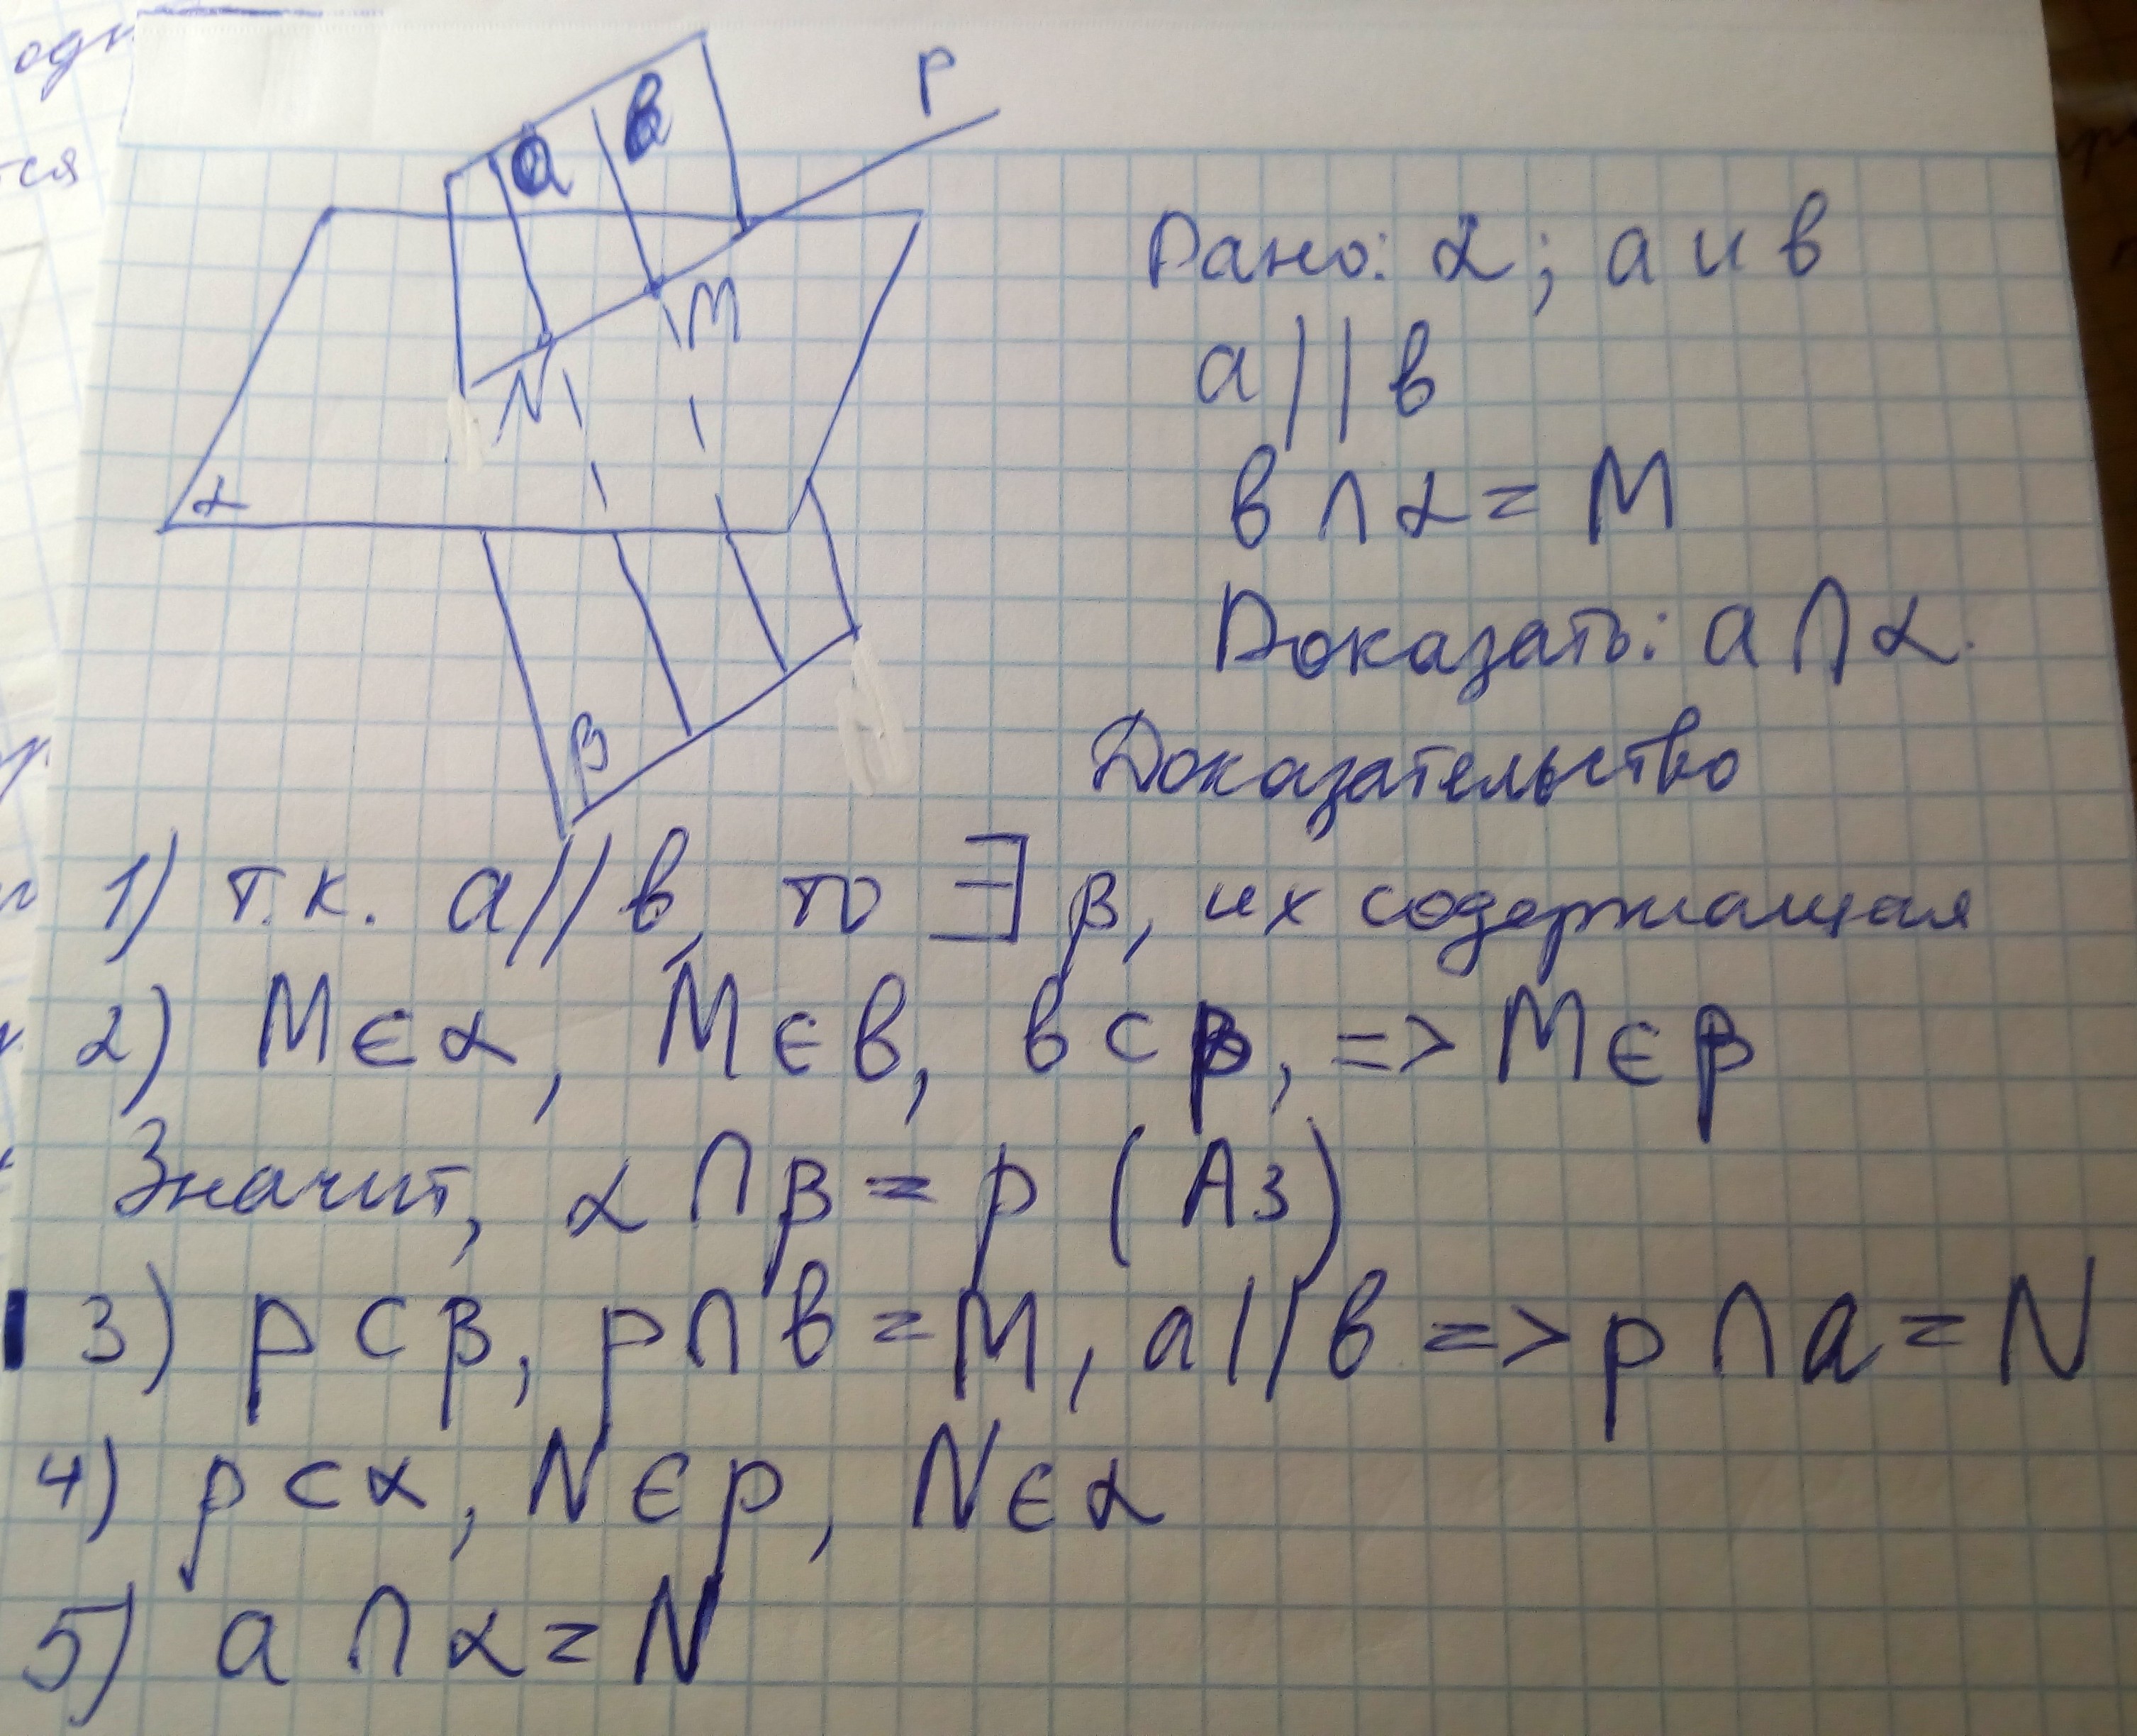 одн
тся
P
a
в
M
N
α
β
Дано: α; a и в
a || в
в ∩ α = M
Доказать: a ∩ α.
Доказательство
1) т.к. a // в, то ∃ β, их содержащая
2) M ∈ α, M ∈ в, в ⊂ β, => M ∈ β
Значит, α ∩ β = p (A3)
3) p ⊂ β, p ∩ в = M, a || в => p ∩ a = N
4) p ⊂ α, N ∈ p, N ∈ α
5) a ∩ α = N